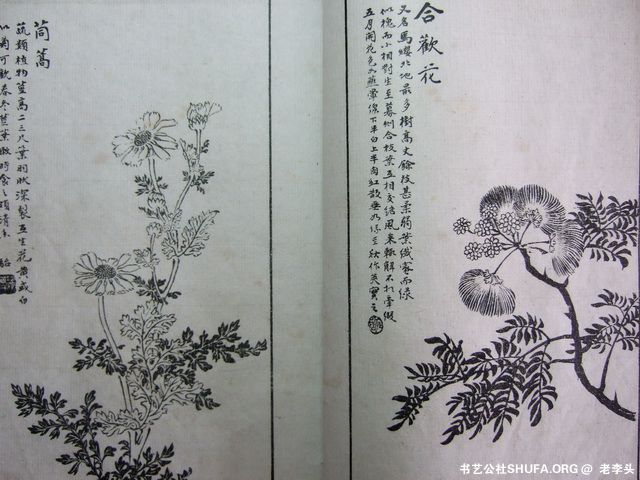 合歡花
又名馬纓北地最多樹高丈餘枝甚柔弱葉纖密而綠
似槐而小相對生至暮則合枝葉互相交結風來輒解不相牽綴
五月開花色如蘸暈線下半白上半肉紅散垂如絲至秋作莢實
茼蒿
蔬類植物莖高二三尺葉羽狀深裂互生花黃或白
似菊可 春冬莖葉嫩時食之頗清香
书艺公社SHUFA.ORG @ 老李头